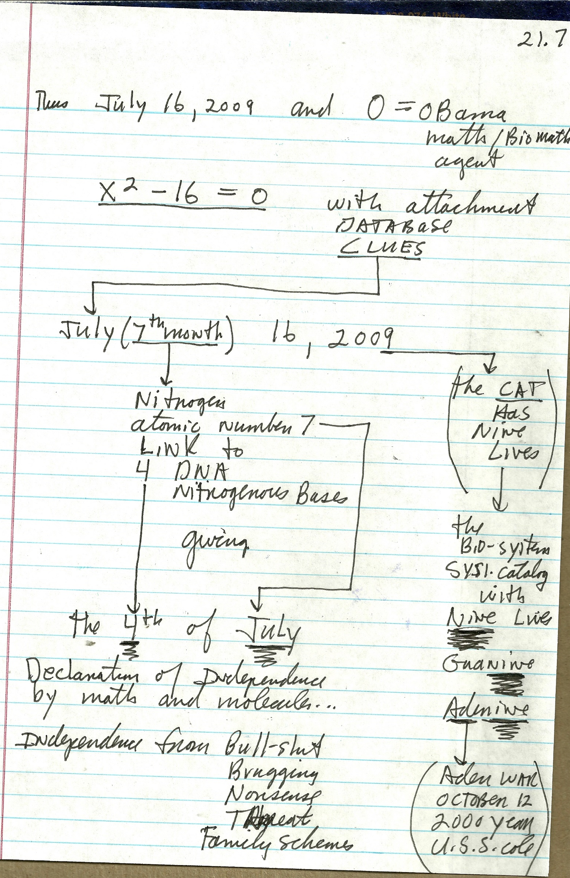 21.7
Thus July 16, 2009 and O = OBama
math/Biomath
agent
x² - 16 = 0
with attachment
DATABASE
CLUES
July (7th month) 16, 2009
Nitrogen
atomic number 7
LINK to
4 DNA
Nitrogenous Bases
giving
the 4th of July
Declaration of Independence
by math and molecules...
Independence from Bull-shit
Bragging
Nonsense
Threat
Family schemes
(the CAT
Has
Nine
Lives)
the
BIO-system
SYSI.catalog
with
Nine Lives
Guanine
Adenine
(Aden WAR
OCTOBER 12
2000 year
U.S.S. Cole)